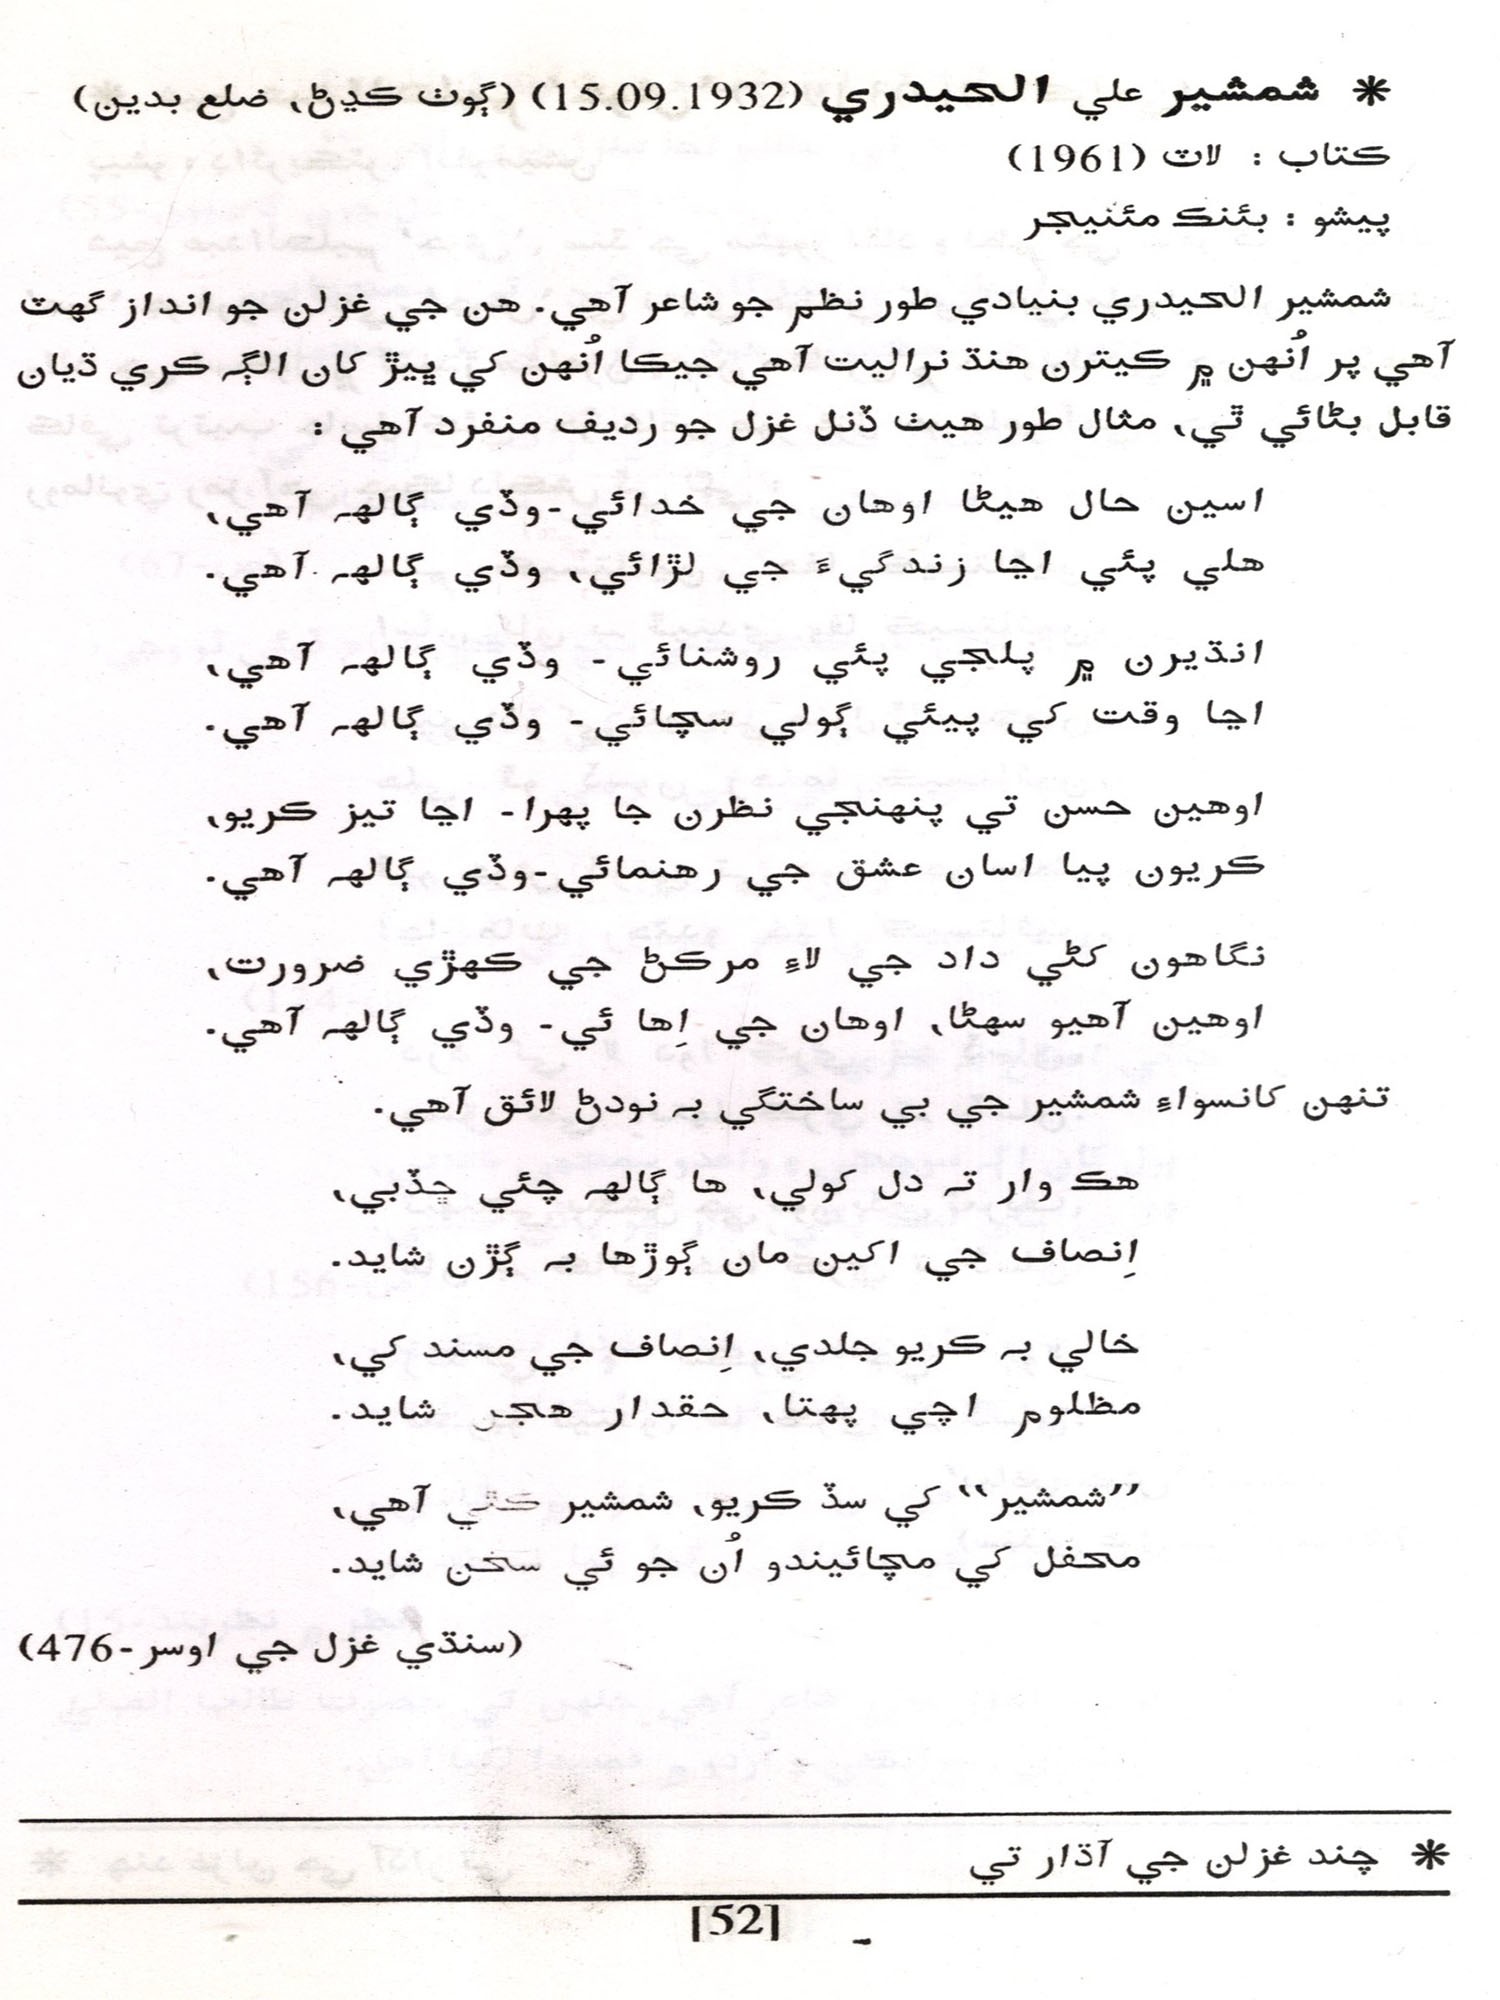 * شمشير علي الحيدري (15.09.1932) (ڳوٺ ڪڍڻ، ضلع بدين)
ڪتاب : لاٽ (1961)
پيشو : بئنڪ مئنيجر
شمشير الحيدري بنيادي طور نظم جو شاعر آهي. هن جي غزلن جو انداز گهٽ
آهي پر اُنهن ۾ ڪيترن هنڌ نراليت آهي جيڪا اُنهن کي ڀيڙ کان الڳ ڪري ڌيان
قابل بڻائي ٿي، مثال طور هيٺ ڏنل غزل جو رديف منفرد آهي :
اسين حال هيڻا اوهان جي خدائي-وڏي ڳالهہ آهي،
هلي پئي اڃا زندگيءَ جي لڙائي، وڏي ڳالهہ آهي.
انڌيرن ۾ پلجي پئي روشنائي- وڏي ڳالهہ آهي،
اڃا وقت کي پيئي ڳولي سچائي- وڏي ڳالهہ آهي.
اوهين حسن تي پنهنجي نظرن جا پهرا- اڃا تيز ڪريو،
ڪريون پيا اسان عشق جي رهنمائي-وڏي ڳالهہ آهي.
نگاهون کڻي داد جي لاءِ مرڪڻ جي ڪهڙي ضرورت،
اوهين آهيو سهڻا، اوهان جي اِها ئي- وڏي ڳالهہ آهي.
تنهن کانسواءِ شمشير جي بي ساختگي بہ نوڊڻ لائق آهي.
هڪ وار تہ دل کولي، ها ڳالهہ چئي ڇڏبي،
اِنصاف جي اکين مان ڳوڙها بہ ڳڙن شايد.
خالي بہ ڪريو جلدي، اِنصاف جي مسند کي،
مظلوم اچي پهتا، حقدار هجن شايد.
”شمشير“ کي سڏ ڪريو، شمشير ڪٿي آهي،
محفل کي مچائيندو اُن جو ئي سخن شايد.
(سنڌي غزل جي اوسر-476)
* چند غزلن جي آڌار تي
[52]